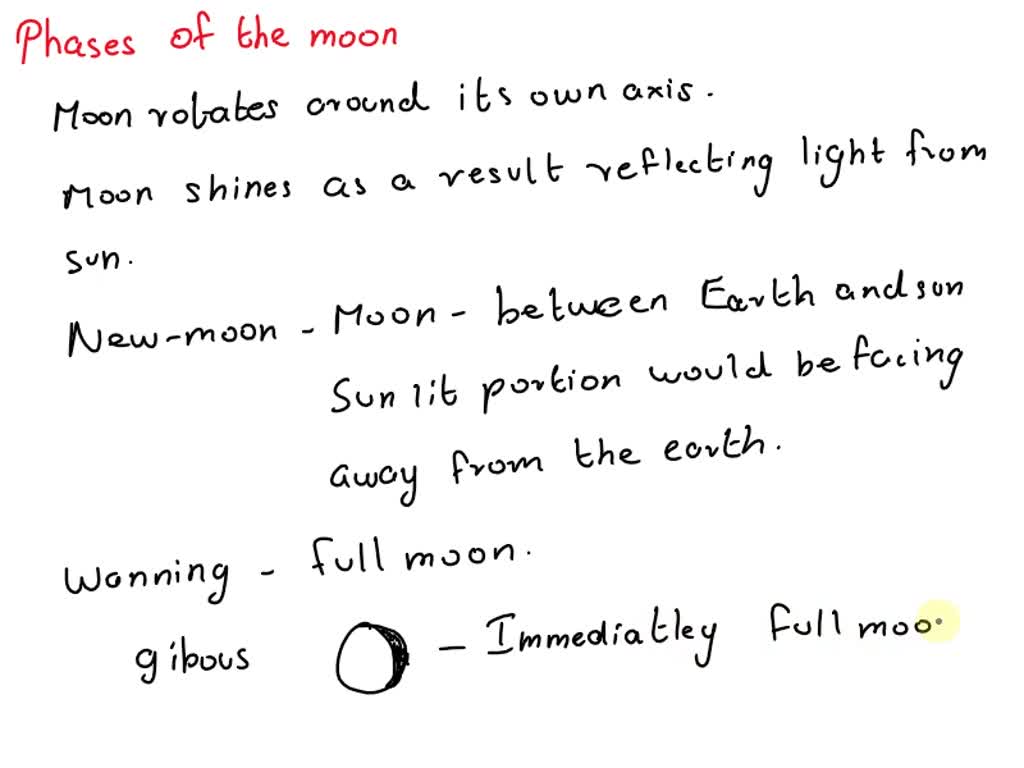 Phases of the moon
Moon rotates around its own axis.
Moon shines as a result reflecting light from
sun.
New-moon - Moon - between Earth and sun
Sun lit portion would be facing
away from the earth.
Wanning - full moon.
gibous - Immediatley full moo